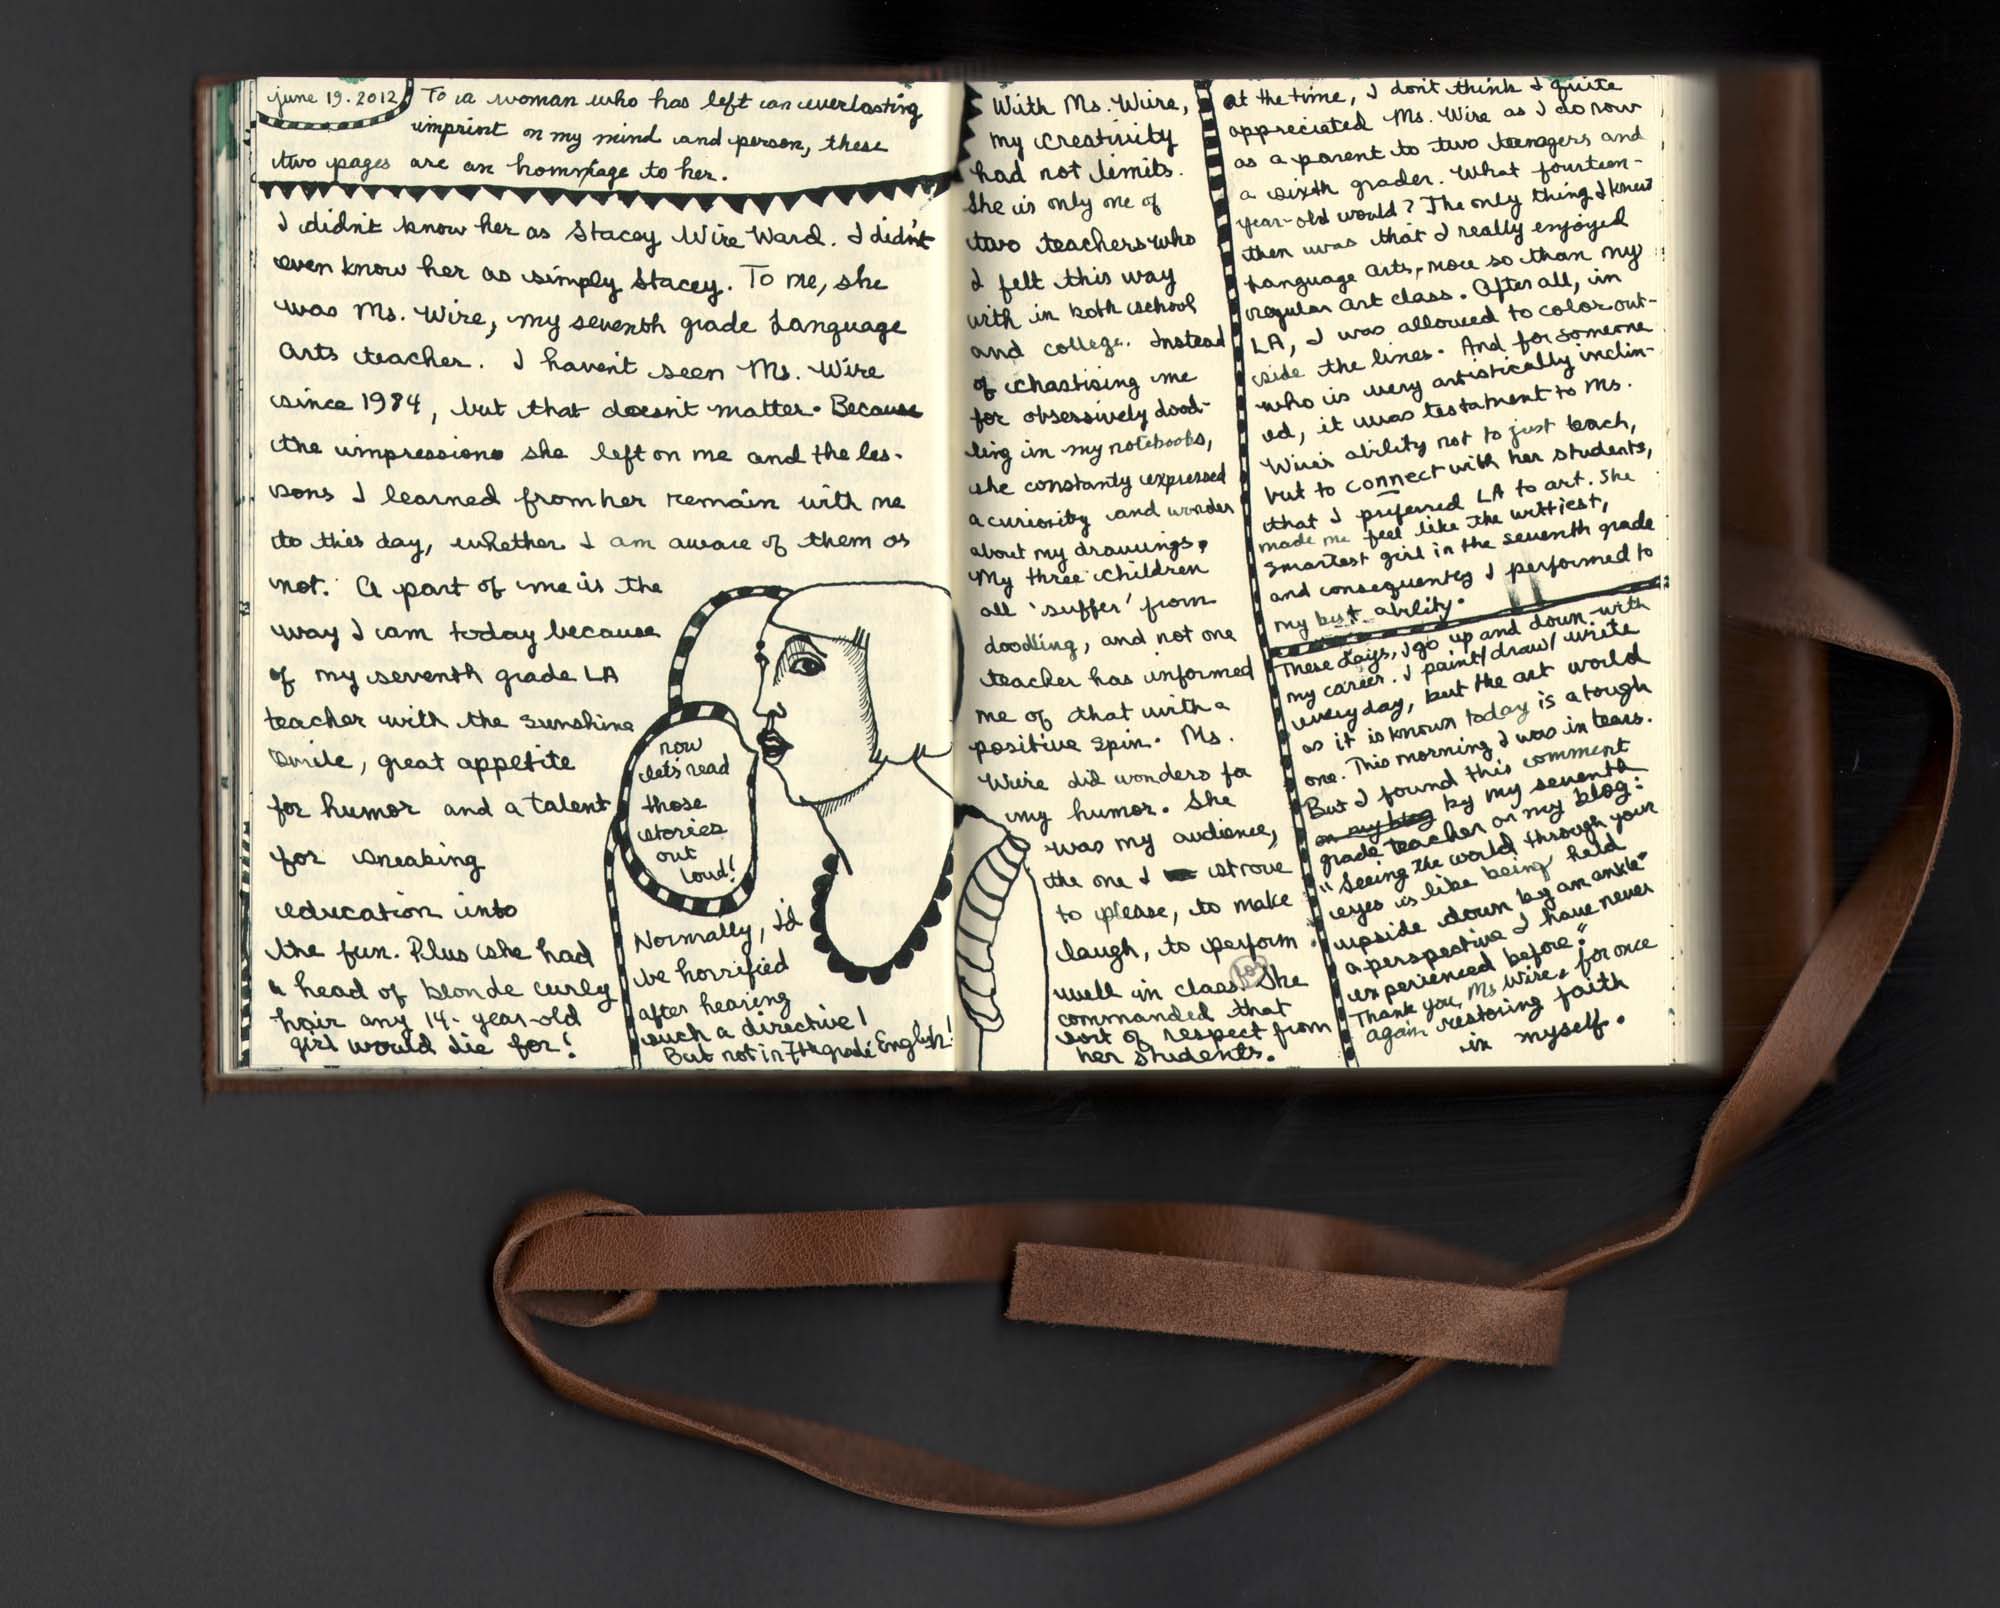 june 19. 2012
To a woman who has left an everlasting
imprint on my mind and person, these
two pages are an hommage to her.
I didn't know her as Stacey Wire Ward. I didn't
even know her as simply Stacey. To me, she
was Ms. Wire, my seventh grade Language
Arts teacher. I haven't seen Ms. Wire
since 1984, but that doesn't matter. Because
the impressions she left on me and the les-
sons I learned from her remain with me
to this day, whether I am aware of them or
not. A part of me is the
way I am today because
of my seventh grade LA
teacher with the sunshine
smile, great appetite
for humor and a talent
for sneaking
education into
the fun. Plus she had
a head of blonde curly
hair any 14-year-old
girl would die for!
now
let's read
those
stories
out
loud!
Normally, I'd
be horrified
after hearing
such a directive!
But not in 7th grade English!
With Ms. Wire,
my creativity
had not limits.
She is only one of
two teachers who
I felt this way
with in both school
and college. Instead
of chastising me
for obsessively dood-
ling in my notebooks,
she constantly expressed
a curiosity and wonder
about my drawings.
My three children
all 'suffer' from
doodling, and not one
teacher has informed
me of that with a
positive spin. Ms.
Wire did wonders for
my humor. She
was my audience,
the one I strove
to please, to make
laugh, to perform
well in class for. She
commanded that
sort of respect from
her students.
at the time, I don't think I quite
appreciated Ms. Wire as I do now
as a parent to two teenagers and
a sixth grader. What fourteen-
year-old would? The only thing I knew
then was that I really enjoyed
Language Arts, more so than my
regular art class. After all, in
LA, I was allowed to color out-
side the lines. And for someone
who is very artistically inclin-
ed, it was testament to Ms.
Wire's ability not to just teach,
but to connect with her students,
that I preferred LA to art. She
made me feel like the wittiest,
smartest girl in the seventh grade
and consequently I performed to
my best ability.
These days, I go up and down with
my career. I paint/draw/write
everyday, but the art world
as it is known today is a tough
one. This morning I was in tears.
But I found this comment
on my blog by my seventh
grade teacher on my blog:
"Seeing the world through your
eyes is like being held
upside down by an ankle -
a perspective I have never
experienced before."
Thank you, Ms Wire, for once
again restoring faith
in myself.